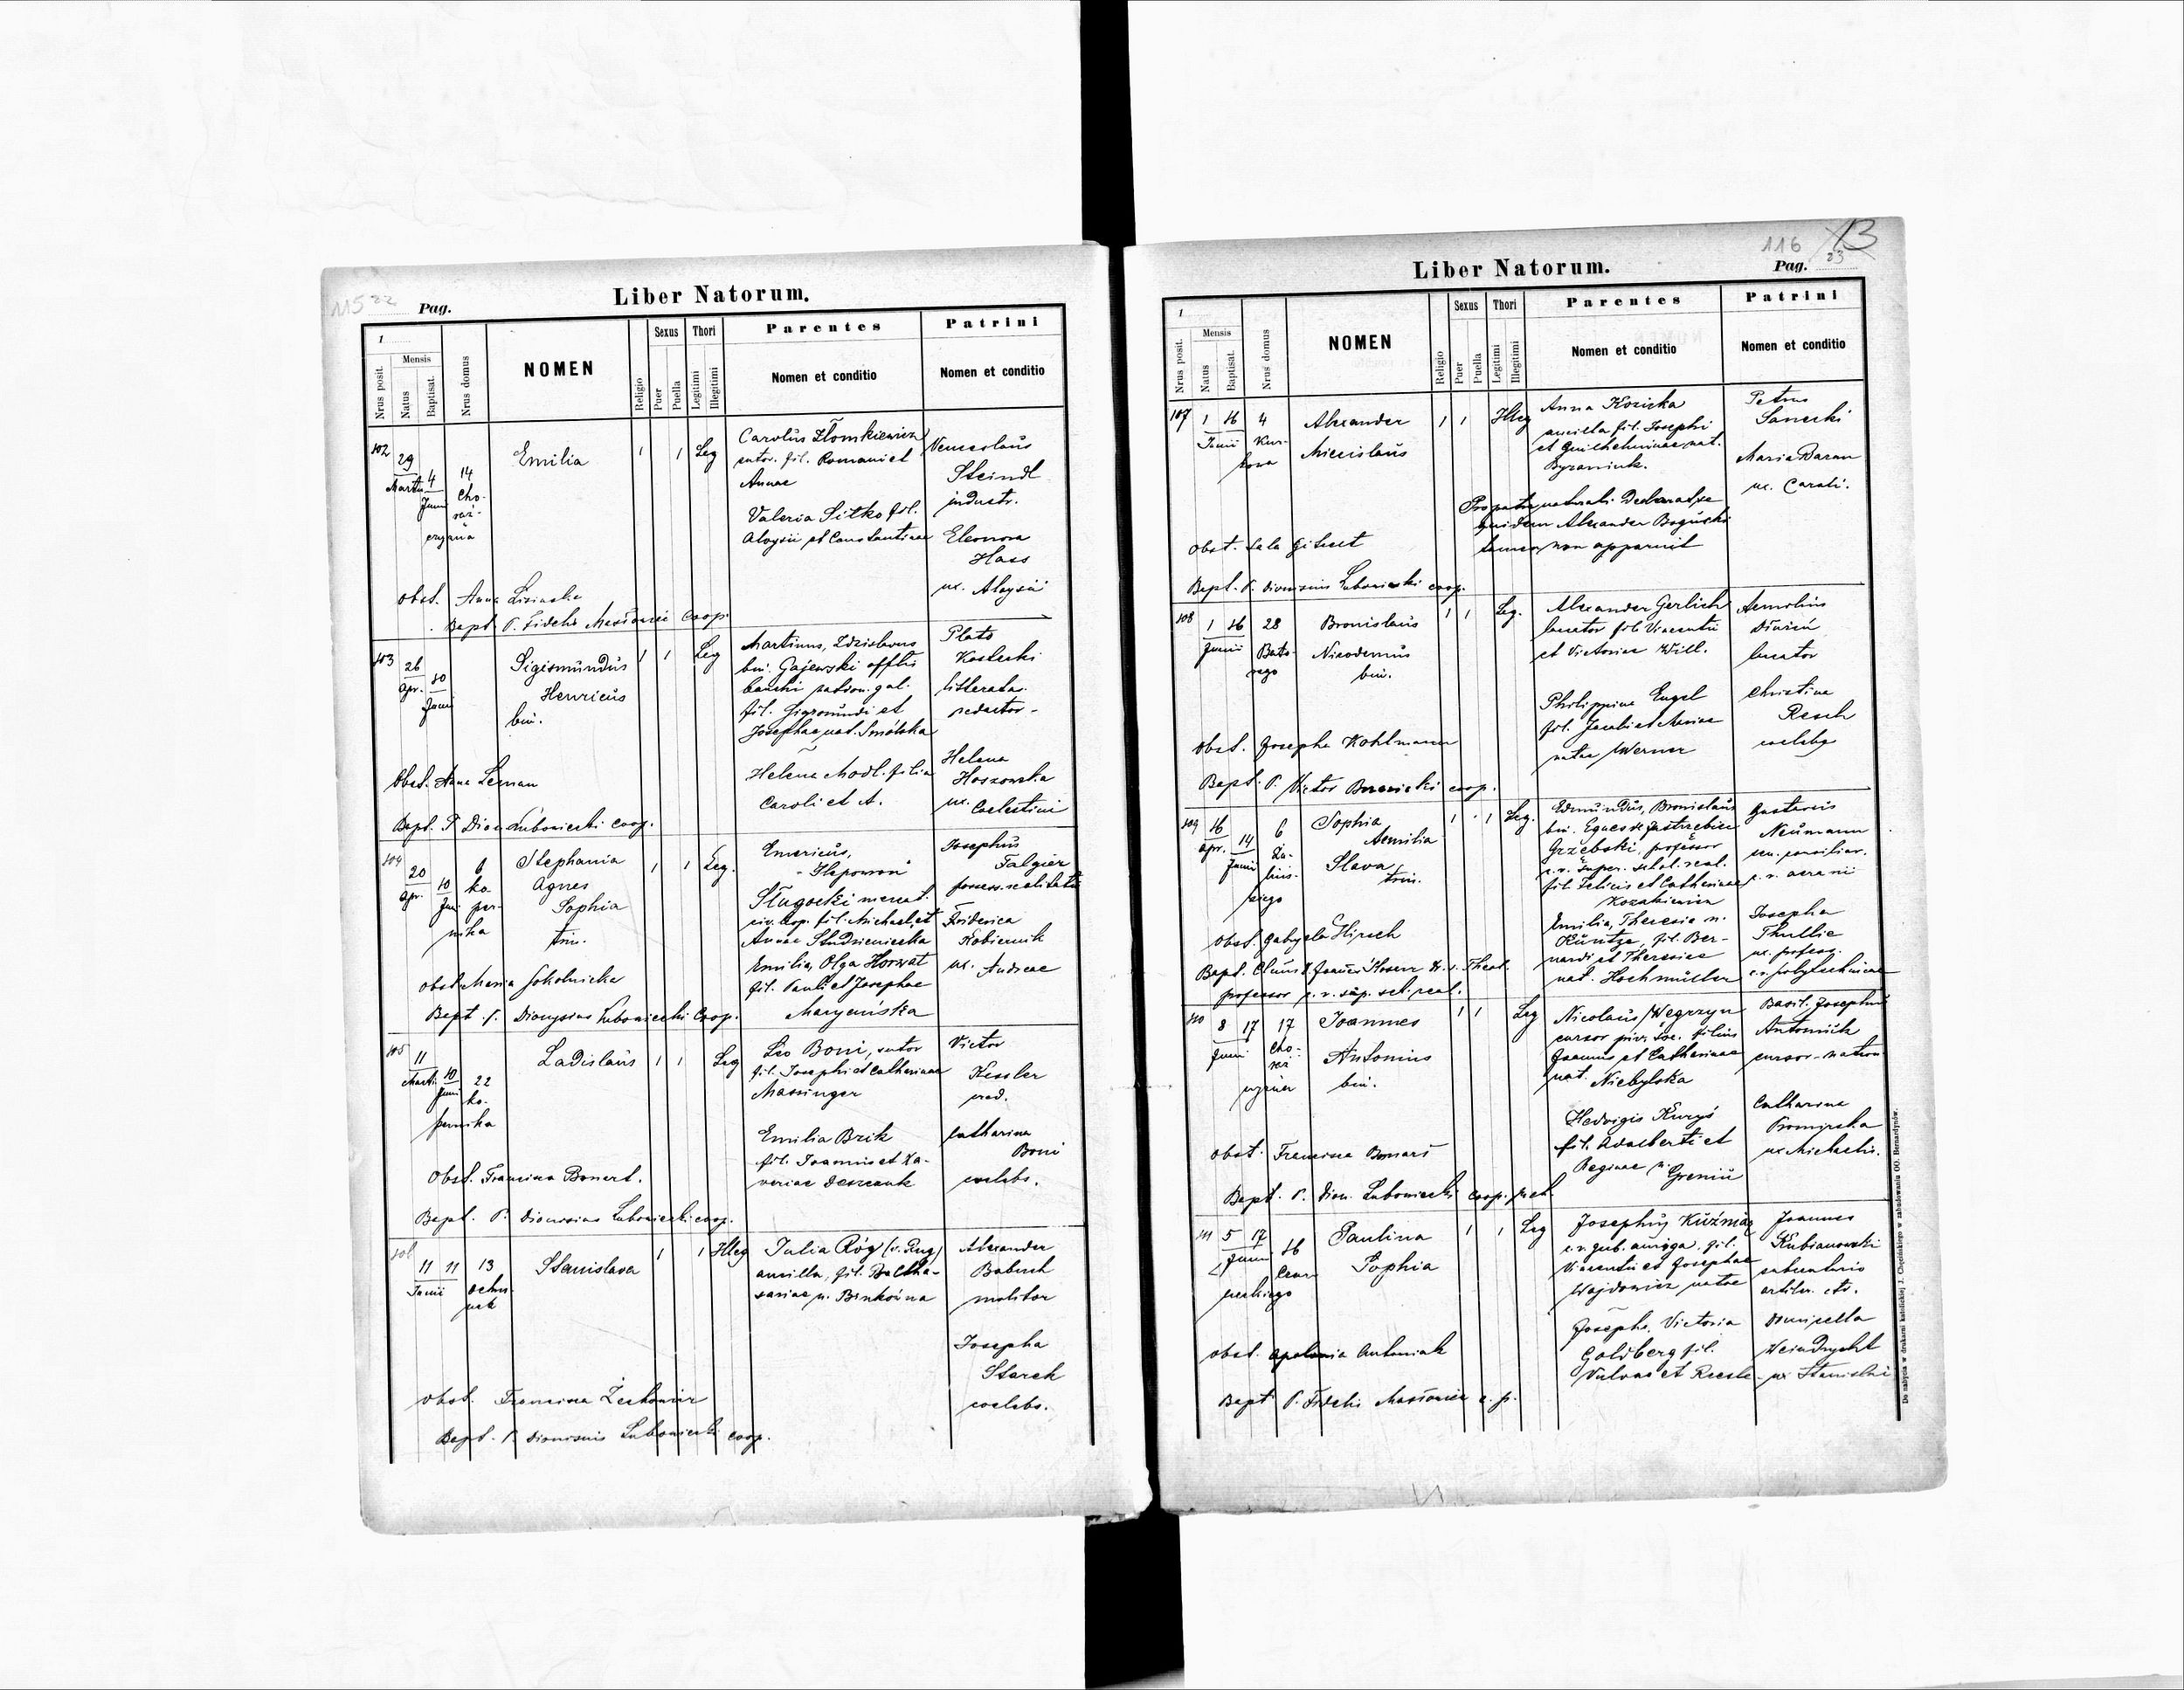 115 22
Pag.
Liber Natorum.
1
Nrus posit.
Mensis
Natus
Baptisat.
Nrus domus
NOMEN
Religio
Sexus
Puer
Puella
Thori
Legitimi
Illegitimi
Parentes
Nomen et conditio
Patrini
Nomen et conditio
102
29
Martii
4
Junii
14
Cho-
Emilia
1
1
Leg
Carolus Złomkiewicz
sutor. fil. Romani et
Annae
Valeria Sitko fil.
Aloysii et Constantinae
Venceslaus
Steindl
industr.
Eleonora
Hass
ux. Aloysii
Obst. Anna
Bapt. P. Fidelis coop.
103
26
Apr.
10
Junii
Sigismundus
Henricus
bin.
1
1
Leg
Martinus, Zdzislaus
bin. Gajewski
fil. Sigismundi et
Josephae nat. Smólska
Helena Modl. filia
Caroli et A.
Plato
Kostecki
litterata.
redactor-
Helena
Hoszowska
ux. Coelestini
Obst. Anna Leman
Bapt. P. Dion. Luboniecki coop.
104
20
Apr.
10
Jun.
6
Ko-
per-
nika
Stephania
Agnes
Sophia
trin.
1
1
Leg.
Emericus,
Sługocki mercat.
fil. Michael. et
Annae Studzieniecka
Emilia, Olga Horwat
fil. Pauli et Josephae
Maryańska
Josephus
Talgier
possess. realitatis
Friderica
Kobiernik
ux. Andreae
Obst. Maria Sokolnicka
Bapt. P. Dionysius Luboniecki Coop.
105
11
Martii
10
Junii
22
Ko-
pernika
Ladislaus
1
1
Leg
Leo Boni, sutor
fil. Josephi et Catherinae
Massinger
Emilia Brik
fil. Joannis et Xa-
veriae
Victor
Kessler
Catharina
Boni
coelebs.
Obst. Francisca Bonert.
Bapt. P. Dionisius Luboniecki coop.
106
11
11
Junii
13
Ochro-
nek
Stanislava
1
1
Illeg
Julia Róg (v. Rug)
ancilla, fil. Baltha-
sariae n. Binkówna
Alexander
Babuch
molitor
Josepha
Starek
coelebs.
Obst. Francisca
Bapt. P. Dionisius Luboniecki coop.
116
13
23
Pag.
Liber Natorum.
1
Nrus posit.
Mensis
Natus
Baptisat.
Nrus domus
NOMEN
Religio
Sexus
Puer
Puella
Thori
Legitimi
Illegitimi
Parentes
Nomen et conditio
Patrini
Nomen et conditio
107
1
16
Junii
4
Kur-
kowa
Alexander
Miecislaus
1
1
Illeg
Anna Koziska
ancilla fil. Josephi
et Guilhelminae nat.
Petrus
Sanecki
Maria Baran
ux. Caroli.
Pro patre naturali declarat se
quidem Alexander Boguski
tamen non apparuit
Obst. Sala Gitset
Bapt. P. Dionisius Luboniecki coop.
108
1
16
Junii
28
Bato-
rego
Bronislaus
Nicodemus
bin.
1
1
Leg.
Alexander Gerlich
locator fil. Vincentii
et Victoriae Will.
Philippina Engel
fil. Jacobi et Annae
natae Werner
locator
Christina
Resch
coelebs
Obst. Josepha Kohlmann
Bapt. P. Victor coop.
109
16
Apr.
14
Junii
6
Sophia
Aemilia
Slava
trin.
1
1
Leg.
Edmundus, Bronislaus
bin. Eques de Jastrzębiec
Grzębski, professor
c. r. super. schol. real.
fil. Felicis et Catherinae
Kozakiewicz
Emilia, Theresia n.
Küntze, fil. Ber-
nardi et Theresiae
nat. Hochmüller
Gustavus
Neumann
c. r. aerarii
Josepha
Thullie
ux. profess.
c. r. polytechnicae
Obst. Gabryela Hirsch
professor c. r. sup. sch. real.
110
8
17
Junii
17
Cho-
Joannes
Antonius
bin.
1
1
Leg
Nicolaus Węgrzyn
cursor priv. soc. filius
Joannis et Catharinae
nat. Niebylska
Hedvigis Kuryś
fil. Adalberti et
Reginae n. Greniu
Basil. Josephus
Antoniuk
cursor
Catharina
ux. Michaelis.
Obst. Francisca
Bapt. P. Dion. Luboniecki coop.
111
5
17
Junii
16
Paulina
Sophia
1
1
Leg
Josephus Kuźma
c. r. gub. auriga. fil.
Vincentii et Josephae
Wajdowicz natae
Josepha Victoria
Goldberg fil.
Joannes
Kubianowski
Weindrycht
ux. Stanislai
Obst. Apolonia Antoniak
Bapt. P. Fidelis
Do nabycia w drukarni katolickiej J. Chęcińskiego w zabudowaniu OO. Bernardynów.